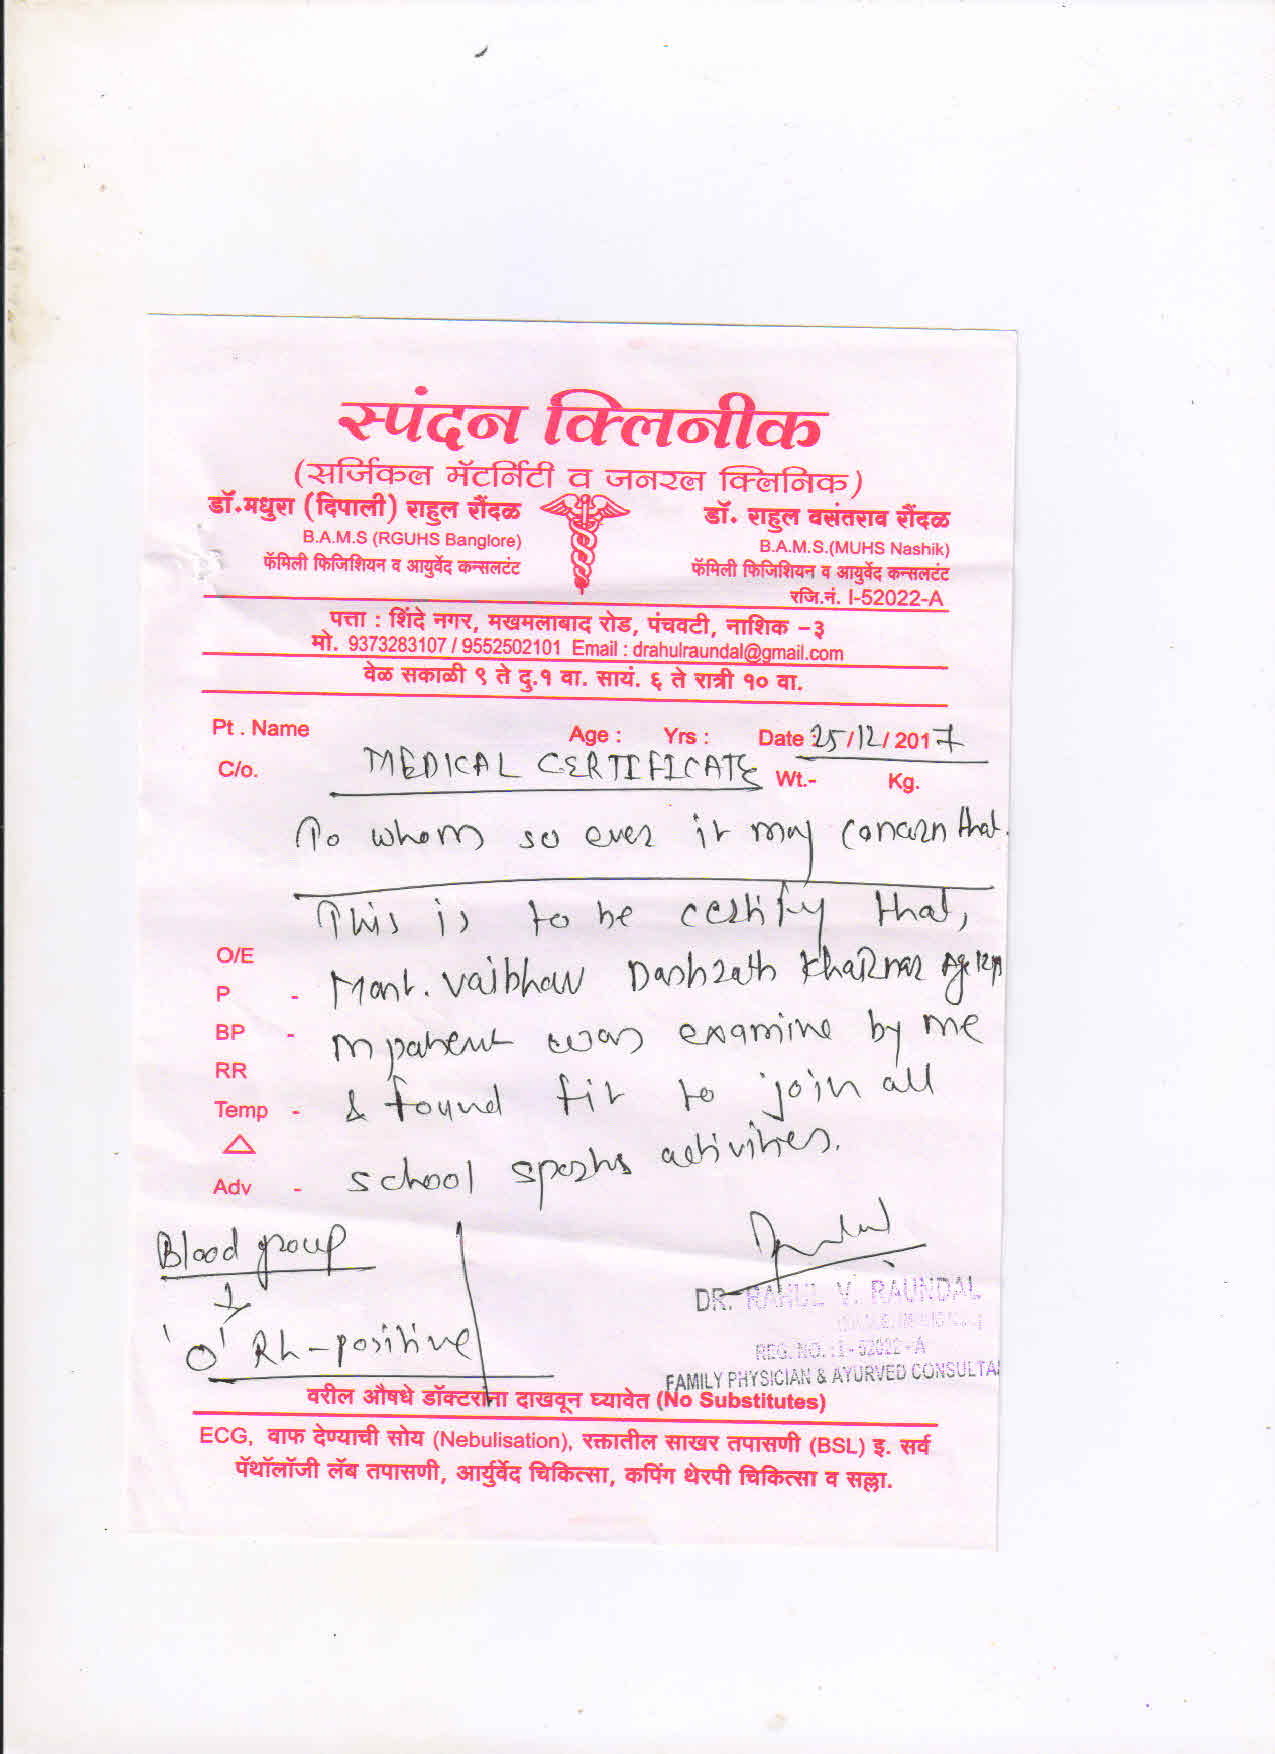 स्पंदन क्लिनीक
(सर्जिकल मॅटर्निटी व जनरल क्लिनिक)
डॉ.मधुरा (दिपाली) राहुल रौंदळ
B.A.M.S (RGUHS Banglore)
फॅमिली फिजिशियन व आयुर्वेद कन्सलटंट
डॉ. राहुल वसंतराव रौंदळ
B.A.M.S.(MUHS Nashik)
फॅमिली फिजिशियन व आयुर्वेद कन्सलटंट
रजि.नं. I-52022-A
पत्ता : शिंदे नगर, मखमलाबाद रोड, पंचवटी, नाशिक -३
मो. 9373283107 / 9552502101 Email : drahulraundal@gmail.com
वेळ सकाळी ९ ते दु.१ वा. सायं. ६ ते रात्री १० वा.
Pt . Name Age : Yrs : Date : 25/12/2017
C/o. MEDICAL CERTIFICATE Wt.- Kg.
To whom so ever it may concern that.
This is to be certify that,
O/E
P - Mast. Vaibhav Dashrath Khairnar Age 12
BP - patient was examine by me
RR
Temp - & found fit to join all
△
Adv - school sports activities.
Blood group
'O' Rh-positive
DR. RAHUL V. RAUNDAL
REG. NO. : I - 52022 - A
FAMILY PHYSICIAN & AYURVED CONSULTA
वरील औषधे डॉक्टरांना दाखवून घ्यावेत (No Substitutes)
ECG, वाफ देण्याची सोय (Nebulisation), रक्तातील साखर तपासणी (BSL) इ. सर्व
पॅथॉलॉजी लॅब तपासणी, आर्युर्वेद चिकित्सा, कपिंग थेरपी चिकित्सा व सल्ला.